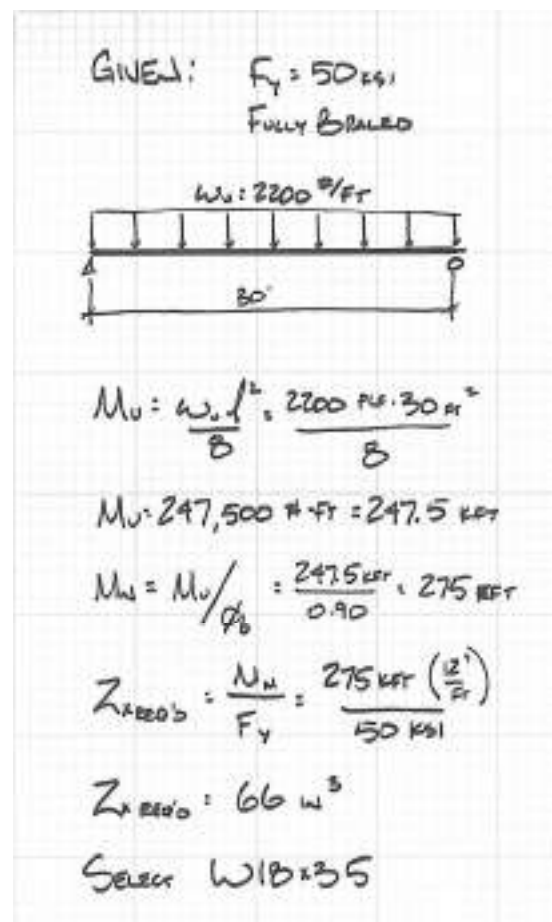 GIVEN: Fy = 50 KSI
FULLY BRACED
ωu = 2200 #/FT
30'
Mu = ωu l² / 8 = 2200 PLF · 30 FT² / 8
Mu = 247,500 #-FT = 247.5 KFT
MN = Mu / φb = 247.5 KFT / 0.90 = 275 KFT
Zx REQ'D = MN / Fy = 275 KFT (12" / FT) / 50 KSI
Zx REQ'D = 66 IN³
SELECT W18x35